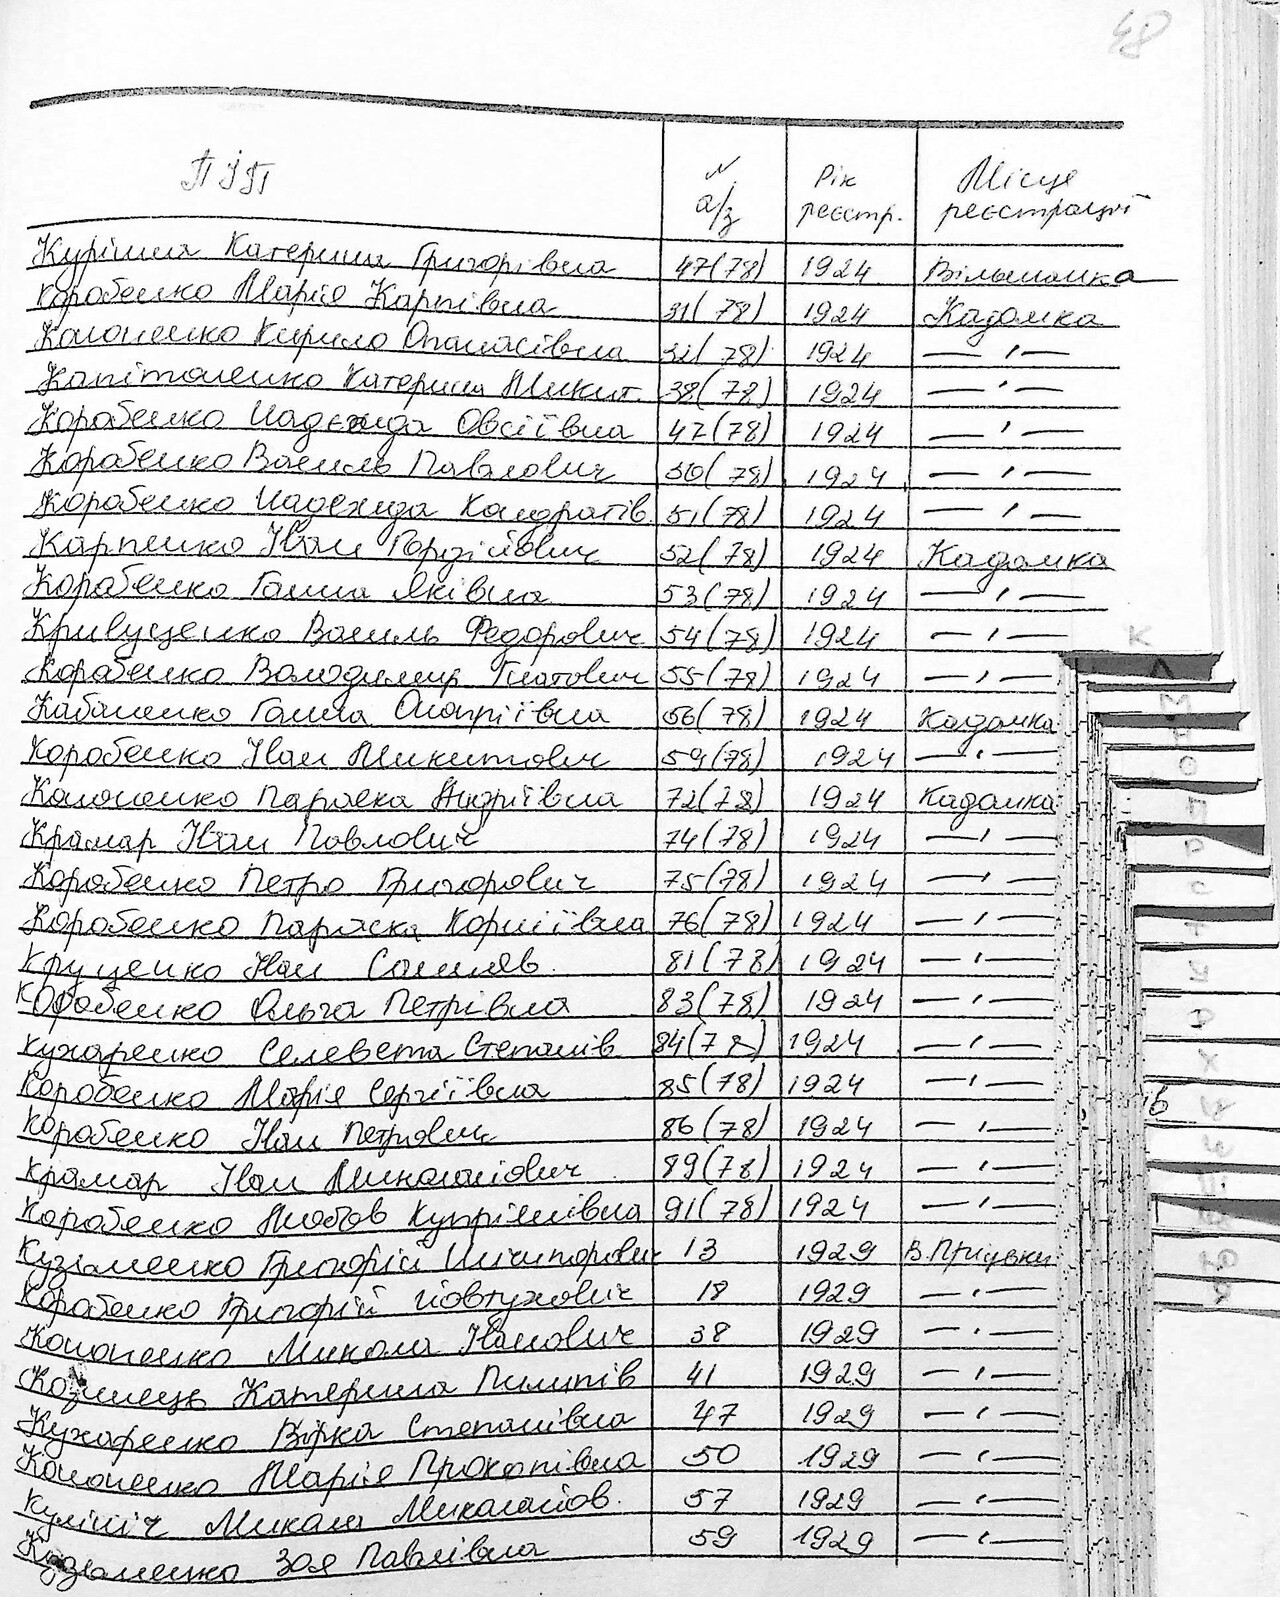 48
ПІП № а/з Рік реєстр. Місце реєстрації
Курінна Катерина Григорівна 47(78) 1924 Вільшанка
Коробенко Марія Карпівна 31(78) 1924 Кадамка
Кононенко Кирило Опанасівна 32(78) 1924 — " —
Капітаненко Катерина Микит. 38(78) 1924 — " —
Коробенко Надежда Овсіївна 47(78) 1924 — " —
Коробенко Василь Павлович 50(78) 1924 — " —
Коробенко Надежда Кандратів. 51(78) 1924 — " —
Карпенко Іван Гордійович 52(78) 1924 Кадамка
Коробенко Ганна Яківна 53(78) 1924 — " —
Кривущенко Василь Федорович 54(78) 1924 — " —
Коробенко Володимир Гнатович 55(78) 1924 — " —
Кабаненко Ганна Онопріївна 56(78) 1924 Кадамка
Коробенко Іван Микитович 59(78) 1924 — " —
Кононенко Параска Андріївна 72(78) 1924 Кадамка
Крамар Іван Павлович 74(78) 1924 — " —
Коробенко Петро Григорович 75(78) 1924 — " —
Коробенко Параска Корніївна 76(78) 1924 — " —
Круценко Іван 81(78) 1924 — " —
Коробенко Ольга Петрівна 83(78) 1924 — " —
Кухаренко Селевета Степанів 84(78) 1924 — " —
Коробенко Марія Сергіївна 85(78) 1924 — " —
Коробенко Іван Петрович 86(78) 1924 — " —
Крамар Іван Миколайович 89(78) 1924 — " —
Коробенко Любов Купріянівна 91(78) 1924 — " —
Кузьменко Григорій Ничипорович 13 1929 В.Прицьки
Коробенко Григорій Йовтухович 18 1929 — " —
Кононенко Микола Іванович 38 1929 — " —
Козинець Катерина Пилипів 41 1929 — " —
Кухаренко Вірка Степанівна 47 1929 — " —
Кононенко Марія Прокопівна 50 1929 — " —
Кулініч Микола Миколайов. 57 1929 — " —
Кузьменко Зоя Павлівна 59 1929 — " —